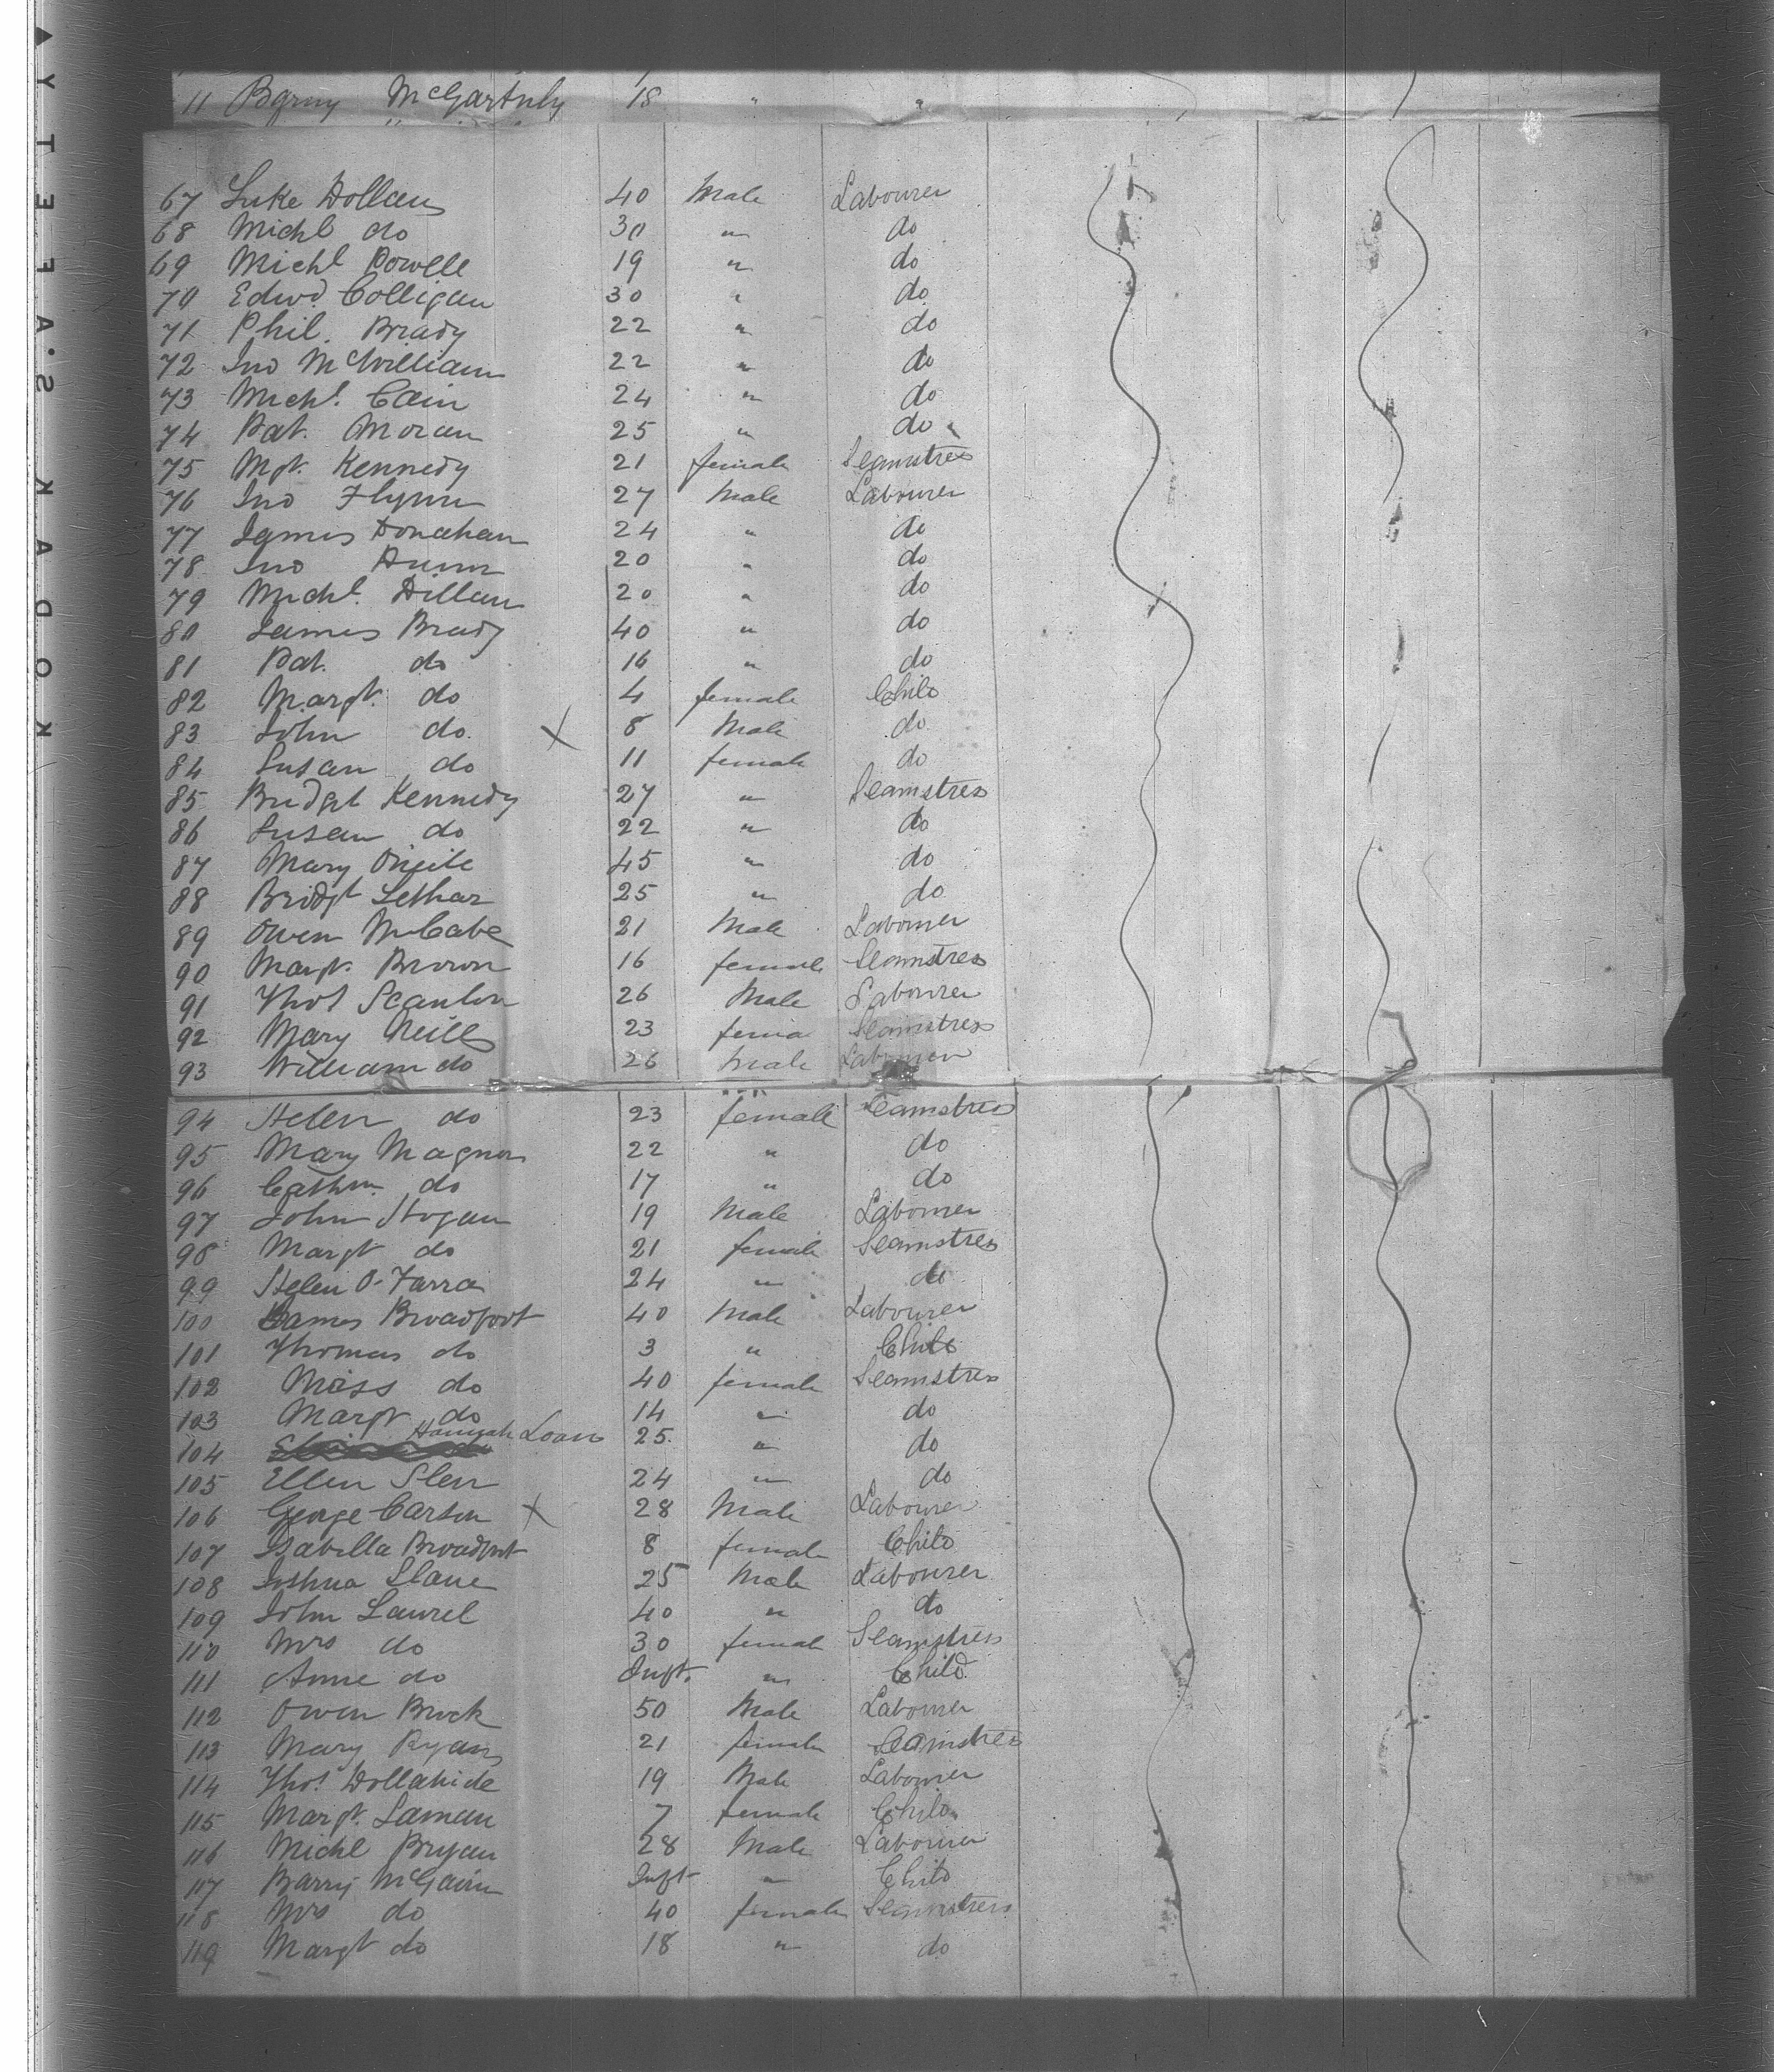 KODAK·SAFETY
11 McGartnly 18 " "
67 Luke Dollan 40 Male Labourer
68 Michl do 30 " do
69 Michl Powell 19 " do
70 Edwd. Colligan 30 " do
71 Phil. Brady 22 " do
72 Jno McWilliam 22 " do
73 Michl. Cain 24 " do
74 Pat. Moran 25 " do
75 Mgt. Kennedy 21 female Seamstress
76 Jno Flynn 27 Male Labourer
77 James Donahan 24 " do
78 Jno Dunn 20 " do
79 Michl. Dillan 20 " do
80 James Brady 40 " do
81 Pat. do 16 " do
82 Margt. do 4 female Child
83 John do. X 8 Male do
84 Susan do 11 female do
85 Bridget Kennedy 27 " Seamstress
86 Susan do 22 " do
87 Mary Oneile 45 " do
88 Bridgt 25 " do
89 Owen McCabe 21 Male Labourer
90 Margt. Brown 16 female Seamstress
91 Thos Scanlon 26 Male Labourer
92 Mary Neill 23 fema Seamstress
93 William do 26 Male Labourer
94 Helen do 23 female Seamstress
95 Mary Magnor 22 " do
96 Cathn. do 17 " do
97 John Hogan 19 Male Labourer
98 Margt do 21 female Seamstress
99 Helen O'Farra 24 " do
100 James Broadfoot 40 Male Labourer
101 Thomas do 3 " Child
102 Miss do 40 female Seamstress
103 Margt do 14 " do
104 Hannah Loan 25 " do
105 Ellen Slen 24 " do
106 George Carson X 28 Male Labourer
107 Isabella Broadfoot 8 female Child
108 Joshua Slane 25 Male Labourer
109 John Laurel 40 " do
110 Mrs do 30 female Seamstress
111 Anne do Inft. " Child
112 Owen Brock 50 Male Labourer
113 Mary Ryan 21 female Seamstress
114 Thos. Dollahide 19 Male Labourer
115 Margt. Laman 7 female Child
116 Michl Bryan 28 Male Labourer
117 Barry McGaurn Inft " Child
118 Mrs do 40 female Seamstress
119 Margt do 18 " do